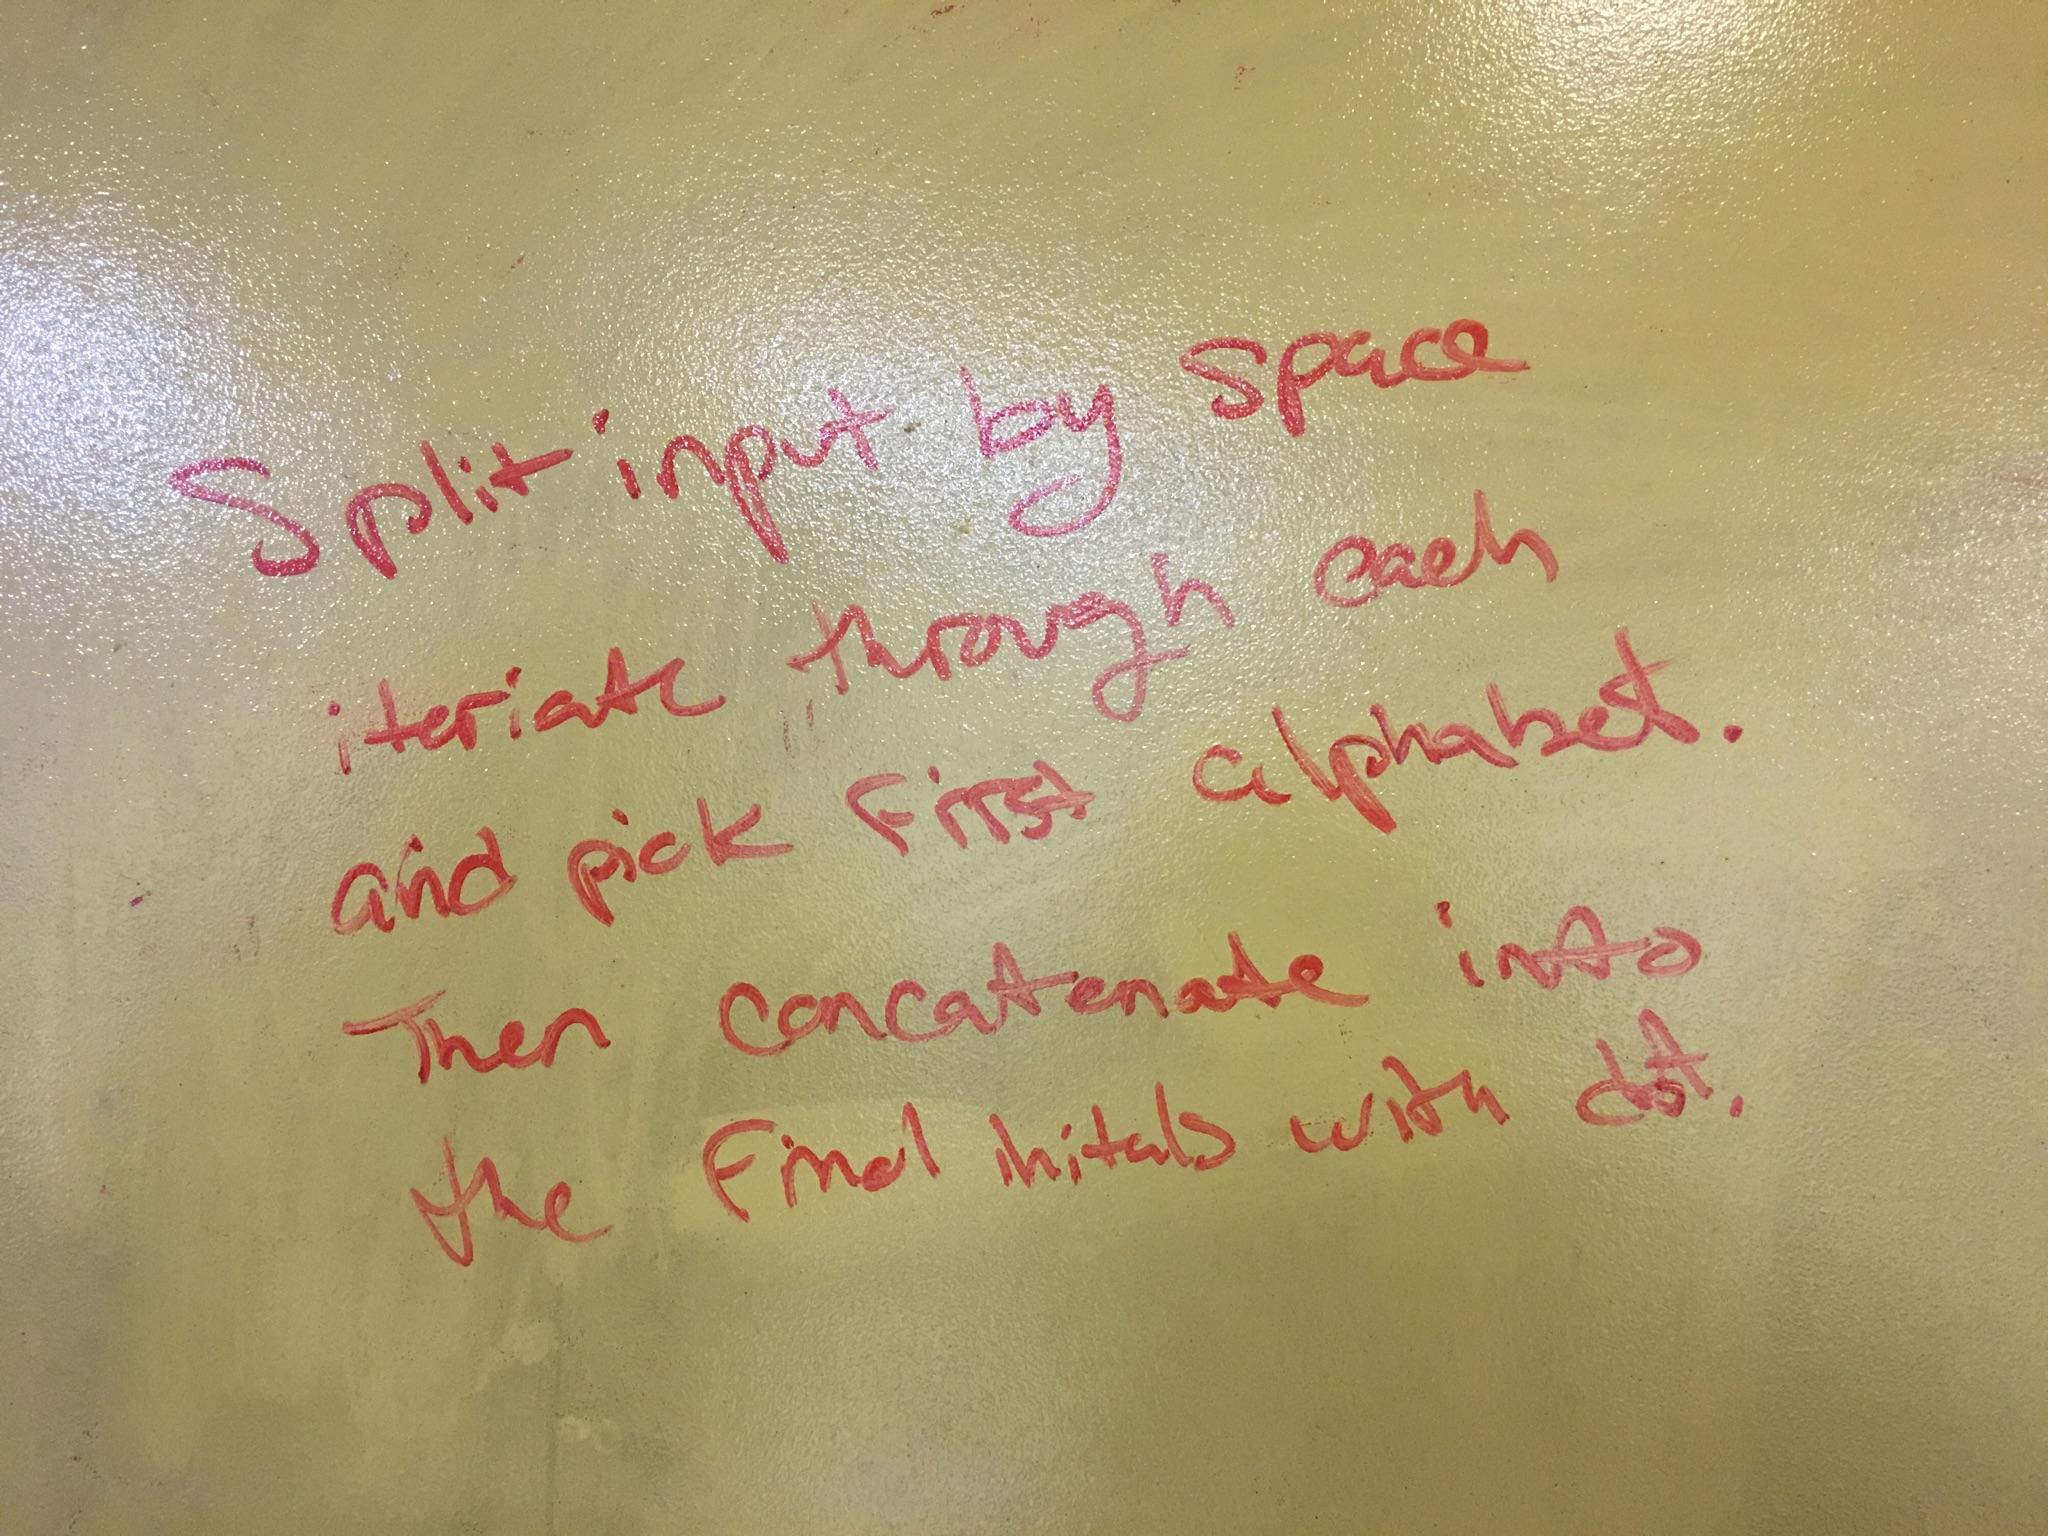 Split input by space
iteriate through each
and pick First alphabet.
Then concatenate into
the Final initals with dot.